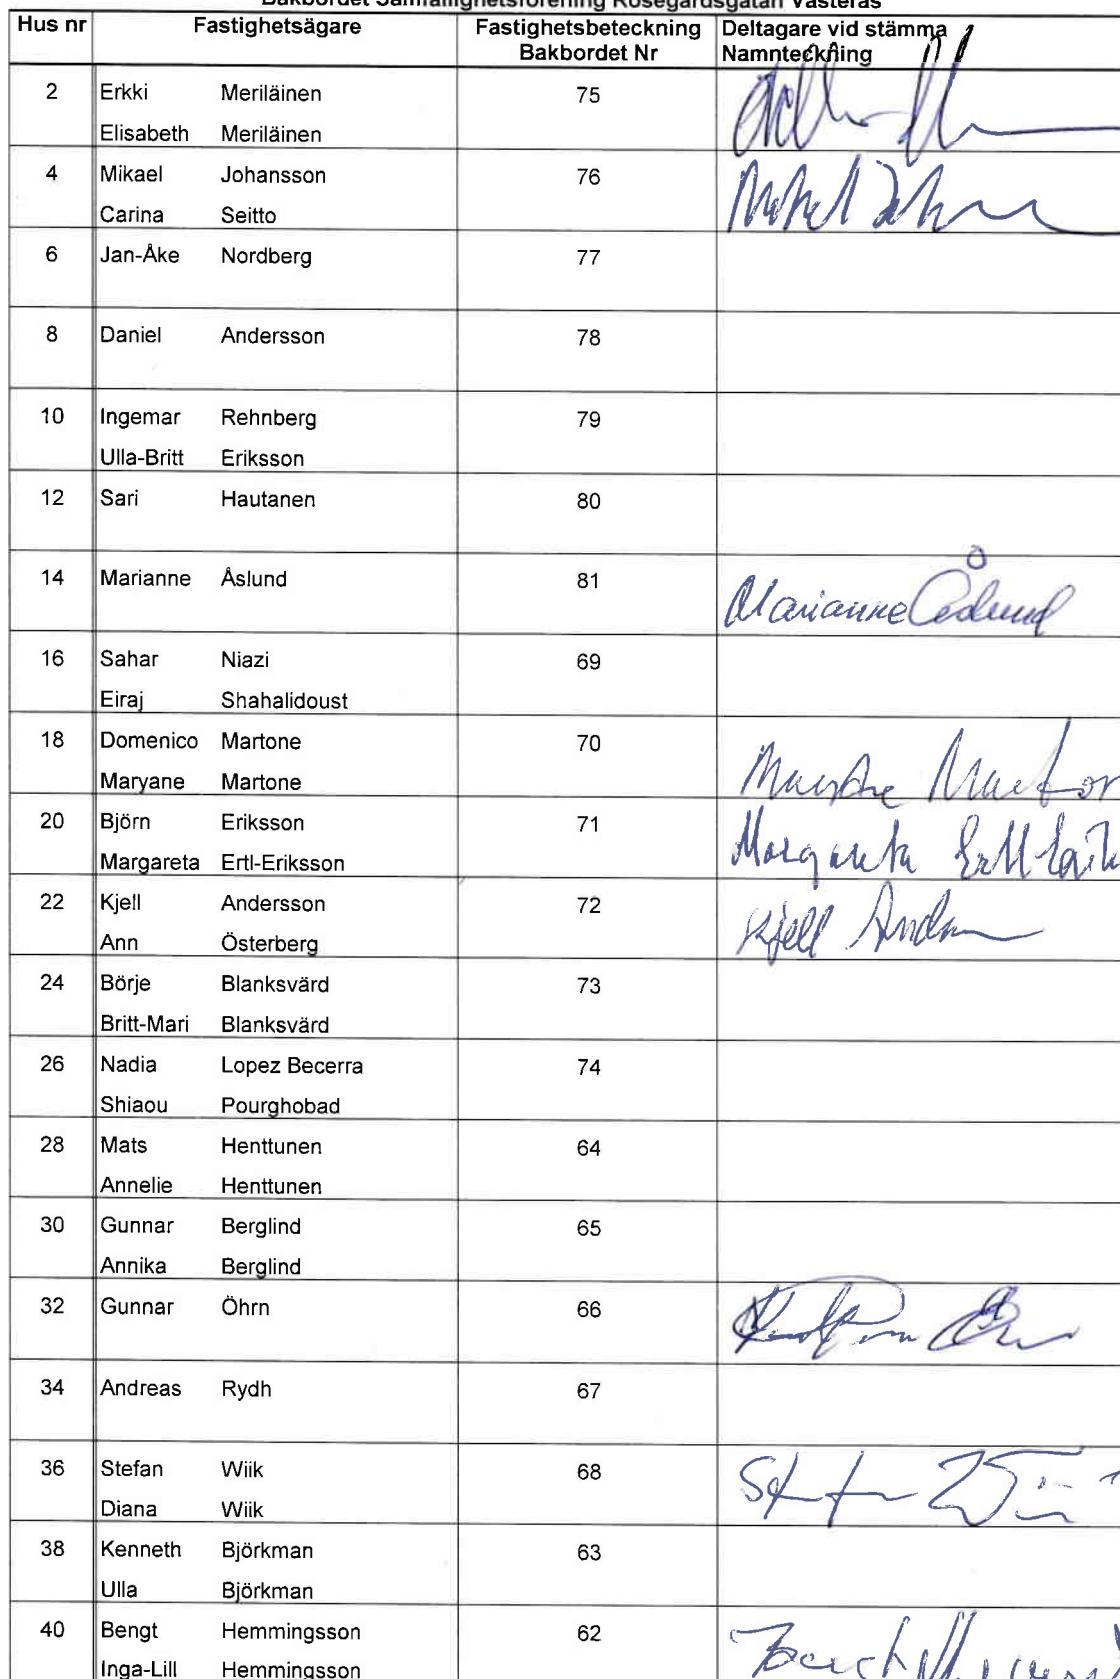 Bakbordet Samfällighetsförening Rosegårdsgatan Västerås
Hus nr Fastighetsägare Fastighetsbeteckning Deltagare vid stämma
Bakbordet Nr Namnteckning
2 Erkki Meriläinen 75
Elisabeth Meriläinen
4 Mikael Johansson 76
Carina Seitto
6 Jan-Åke Nordberg 77
8 Daniel Andersson 78
10 Ingemar Rehnberg 79
Ulla-Britt Eriksson
12 Sari Hautanen 80
14 Marianne Åslund 81 Marianne Åslund
16 Sahar Niazi 69
Eiraj Shahalidoust
18 Domenico Martone 70
Maryane Martone
20 Björn Eriksson 71 Margareta
Margareta Ertl-Eriksson
22 Kjell Andersson 72 Kjell
Ann Österberg
24 Börje Blanksvärd 73
Britt-Mari Blanksvärd
26 Nadia Lopez Becerra 74
Shiaou Pourghobad
28 Mats Henttunen 64
Annelie Henttunen
30 Gunnar Berglind 65
Annika Berglind
32 Gunnar Öhrn 66
34 Andreas Rydh 67
36 Stefan Wiik 68
Diana Wiik
38 Kenneth Björkman 63
Ulla Björkman
40 Bengt Hemmingsson 62
Inga-Lill Hemmingsson